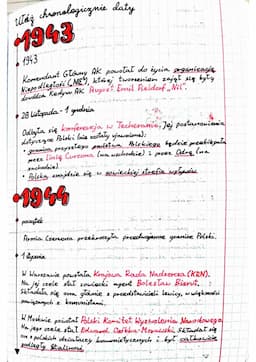 Ułóż chronologicznie daty
1943
• 1943
Komendant Główny AK powołał do życia organizację
Niepodległość ("NIE"), której tworzeniem zajął się były
dowódca Kedywu AK August Emil Fieldorf „Nil".
• 28 listopada - 1 grudnia
Odbyła się konferencja w Teheranie. Jej postanowienia
dotyczące Polski (nie zostały ujawnione):
• granica przyszłego państwa Polskiego będzie przebiegała
przez Linię Curzona (na wschodzie) i przez Odrę (na
zachodzie)
• Polska znajdzie się w sowieckiej strefie wpływów
1944
• początek
Armia Czerwona przekroczyła przedwojenne granice Polski.
• 1 stycznia
W Warszawie powstała Krajowa Rada Narodowa (KRN).
Na jej czele stał sowiecki agent Bolesław Bierut,
składała się ona głównie z przedstawicieli lewicy, w większości
powiązanych z komunistami.
W Moskwie powstał Polski Komitet Wyzwolenia Narodowego
Na jego czele stał Edward Osóbka-Morawski. Składał się
on z polskich działaczy komunistycznych i był całkowicie
podległy Stalinowi